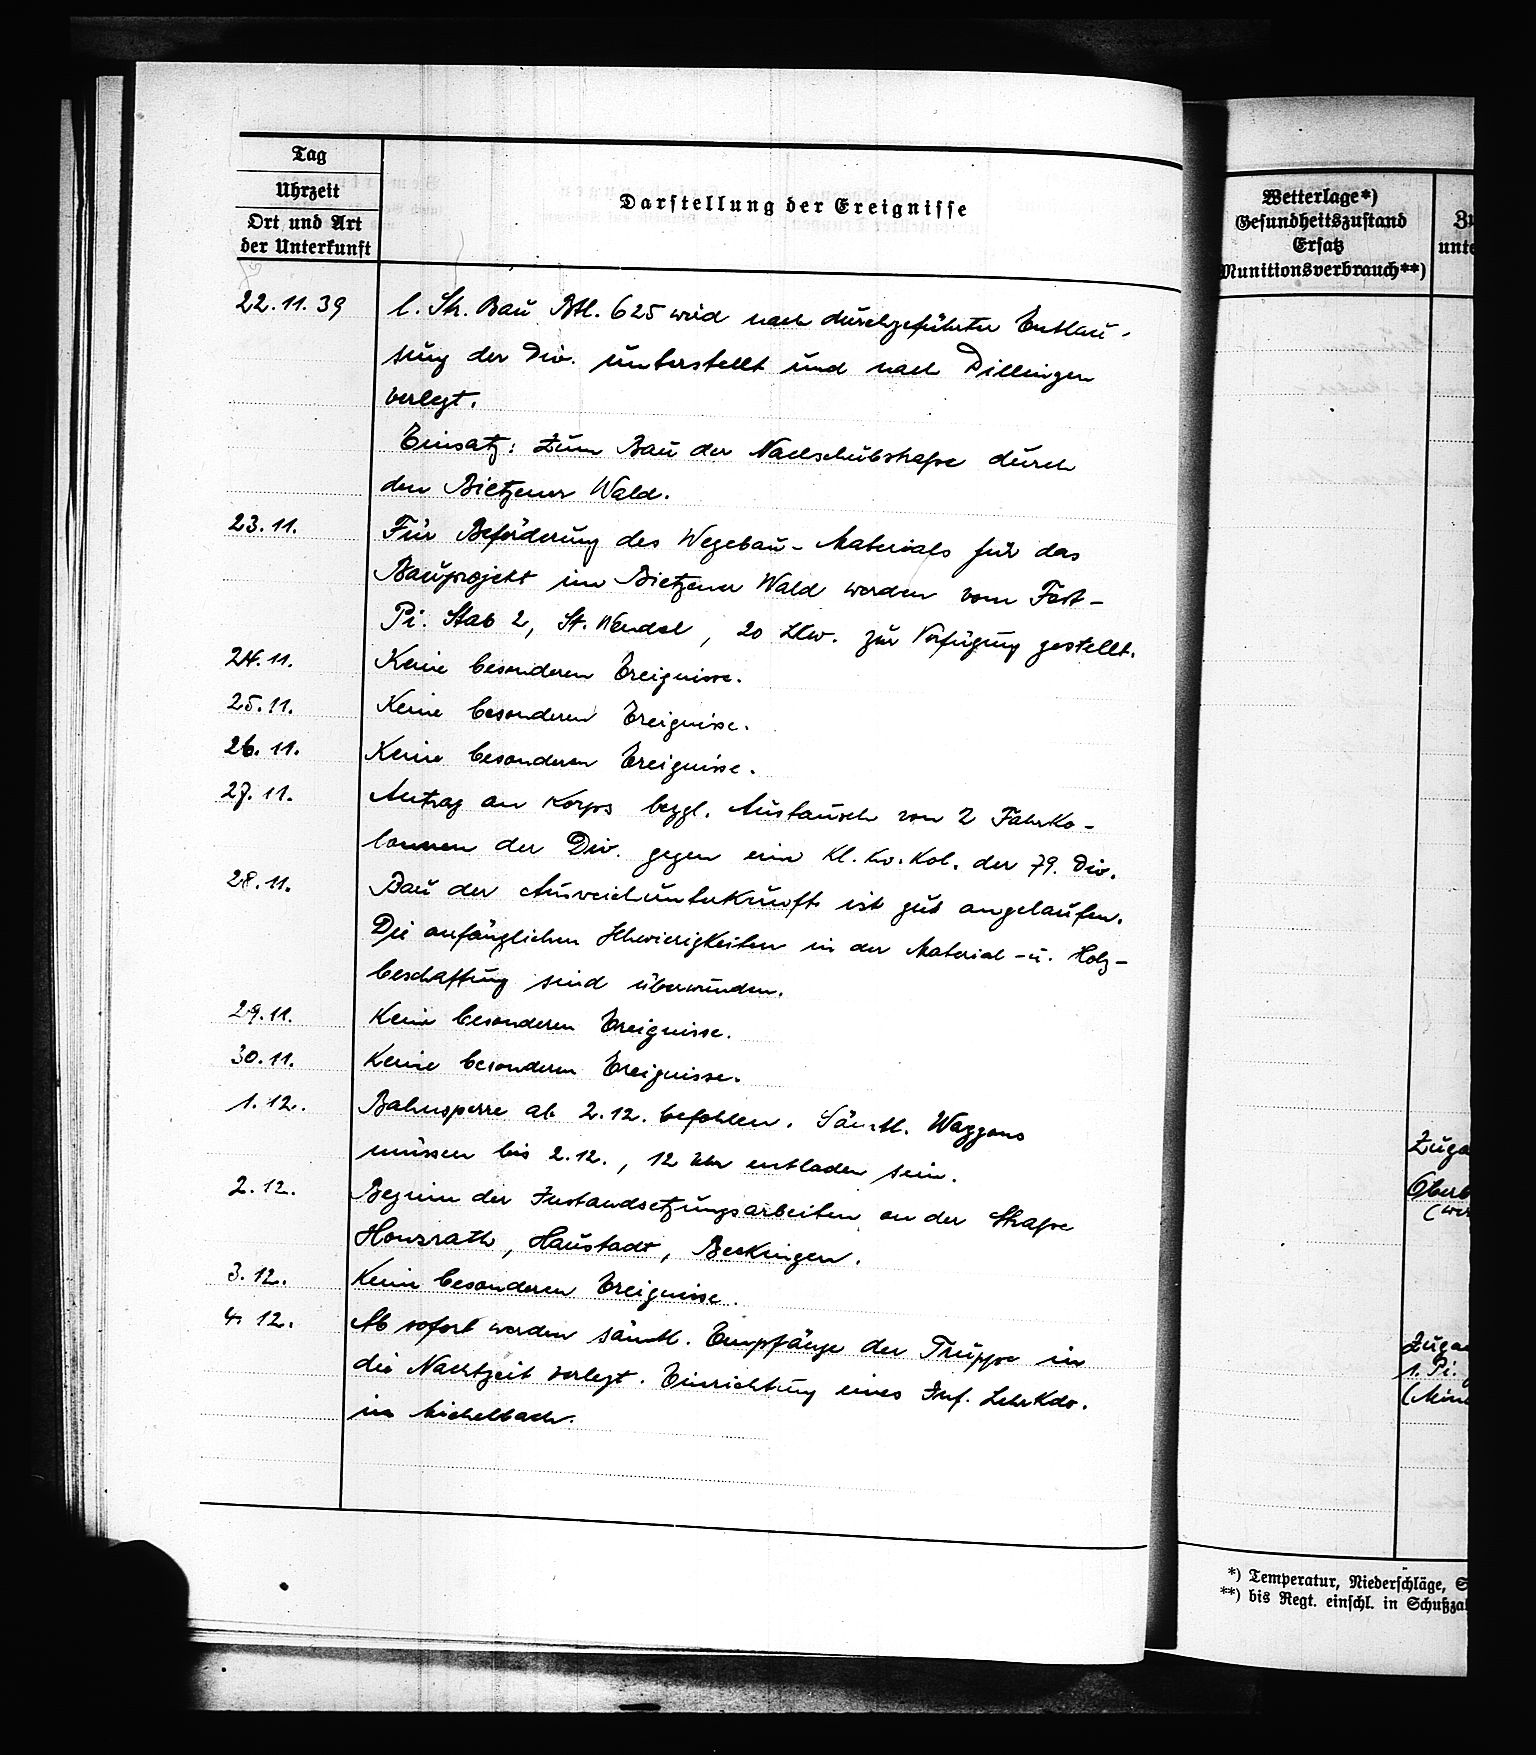 Tag
Uhrzeit
Ort und Art
der Unterkunft
Darstellung der Ereignisse
22.11.39
l. Str. Bau Btl. 625 wird nach durchgeführter Entlau-
sung der Div. unterstellt und nach Dillingen
verlegt.
Einsatz: Zum Bau der Nachschubstraße durch
den Bietzener Wald.
23.11.
Für Beförderung des Wegebau-Materials für das
Bauprojekt im Bietzener Wald werden vom Fest-
Pi. Stab 2, St. Wendel, 20 LKw. zur Verfügung gestellt.
24.11.
Keine besonderen Ereignisse.
25.11.
Keine besonderen Ereignisse.
26.11.
Keine besonderen Ereignisse.
27.11.
Antrag an Korps bezgl. Austausch von 2 Fahrko-
lonnen der Div. gegen eine Kl. Kw. Kol. der 79. Div.
28.11.
Bau der Ausweichunterkunft ist gut angelaufen.
Die anfänglichen Schwierigkeiten in der Material-u. Holz-
beschaffung sind überwunden.
29.11.
Keine besonderen Ereignisse.
30.11.
Keine besonderen Ereignisse.
1.12.
Bahnsperre ab 2.12. befohlen. Sämtl. Waggons
müssen bis 2.12., 12 Uhr entladen sein.
2.12.
Beginn der Instandsetzungsarbeiten an der Straße
Honzrath, Haustadt, Beckingen.
3.12.
Keine besonderen Ereignisse.
4. 12.
Ab sofort werden sämtl. Empfänge der Truppe in
die Nachtzeit verlegt. Einrichtung eines Inf. Lehrkdo.
in Michelbach.
Wetterlage*)
Gesundheitszustand
Ersatz
Munitionsverbrauch**)
Zu
unte
Zuga
Oberb
Zuga
1. Pi.
(Min
*) Temperatur, Niederschläge, S
**) bis Regt. einschl. in Schußzal